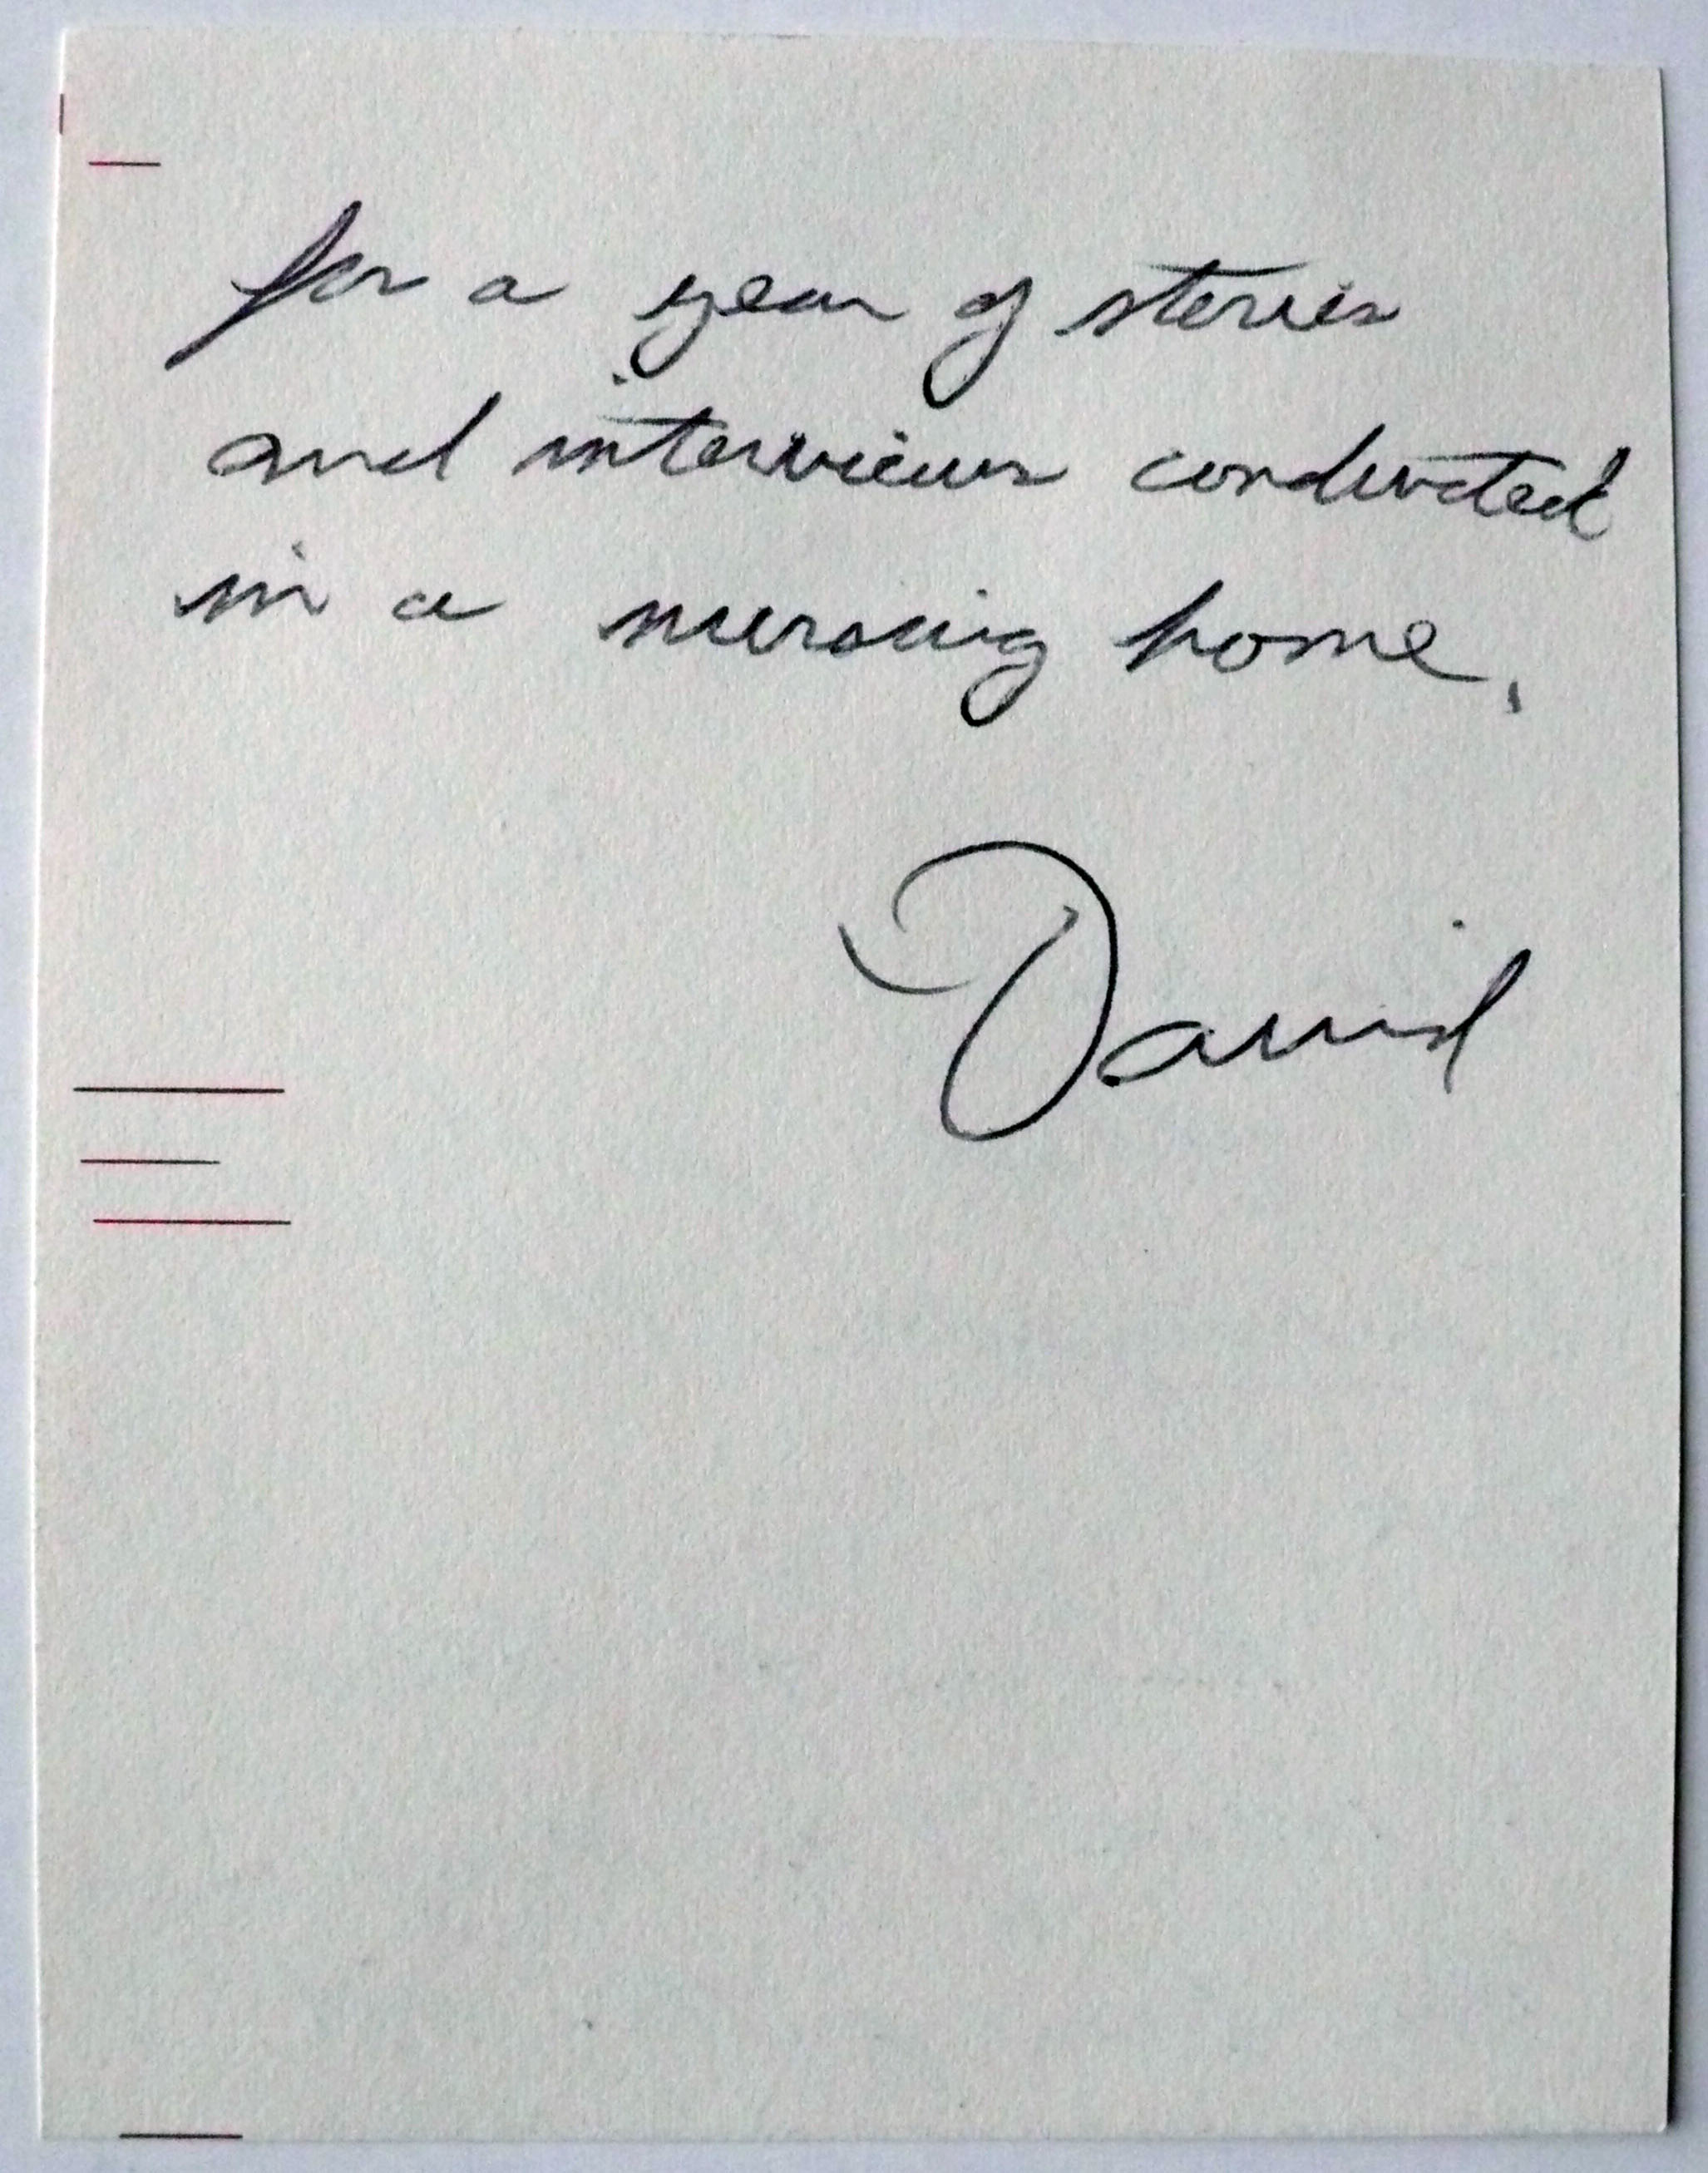 for a year of stories
and interviews conducted
in a nursing home.
David